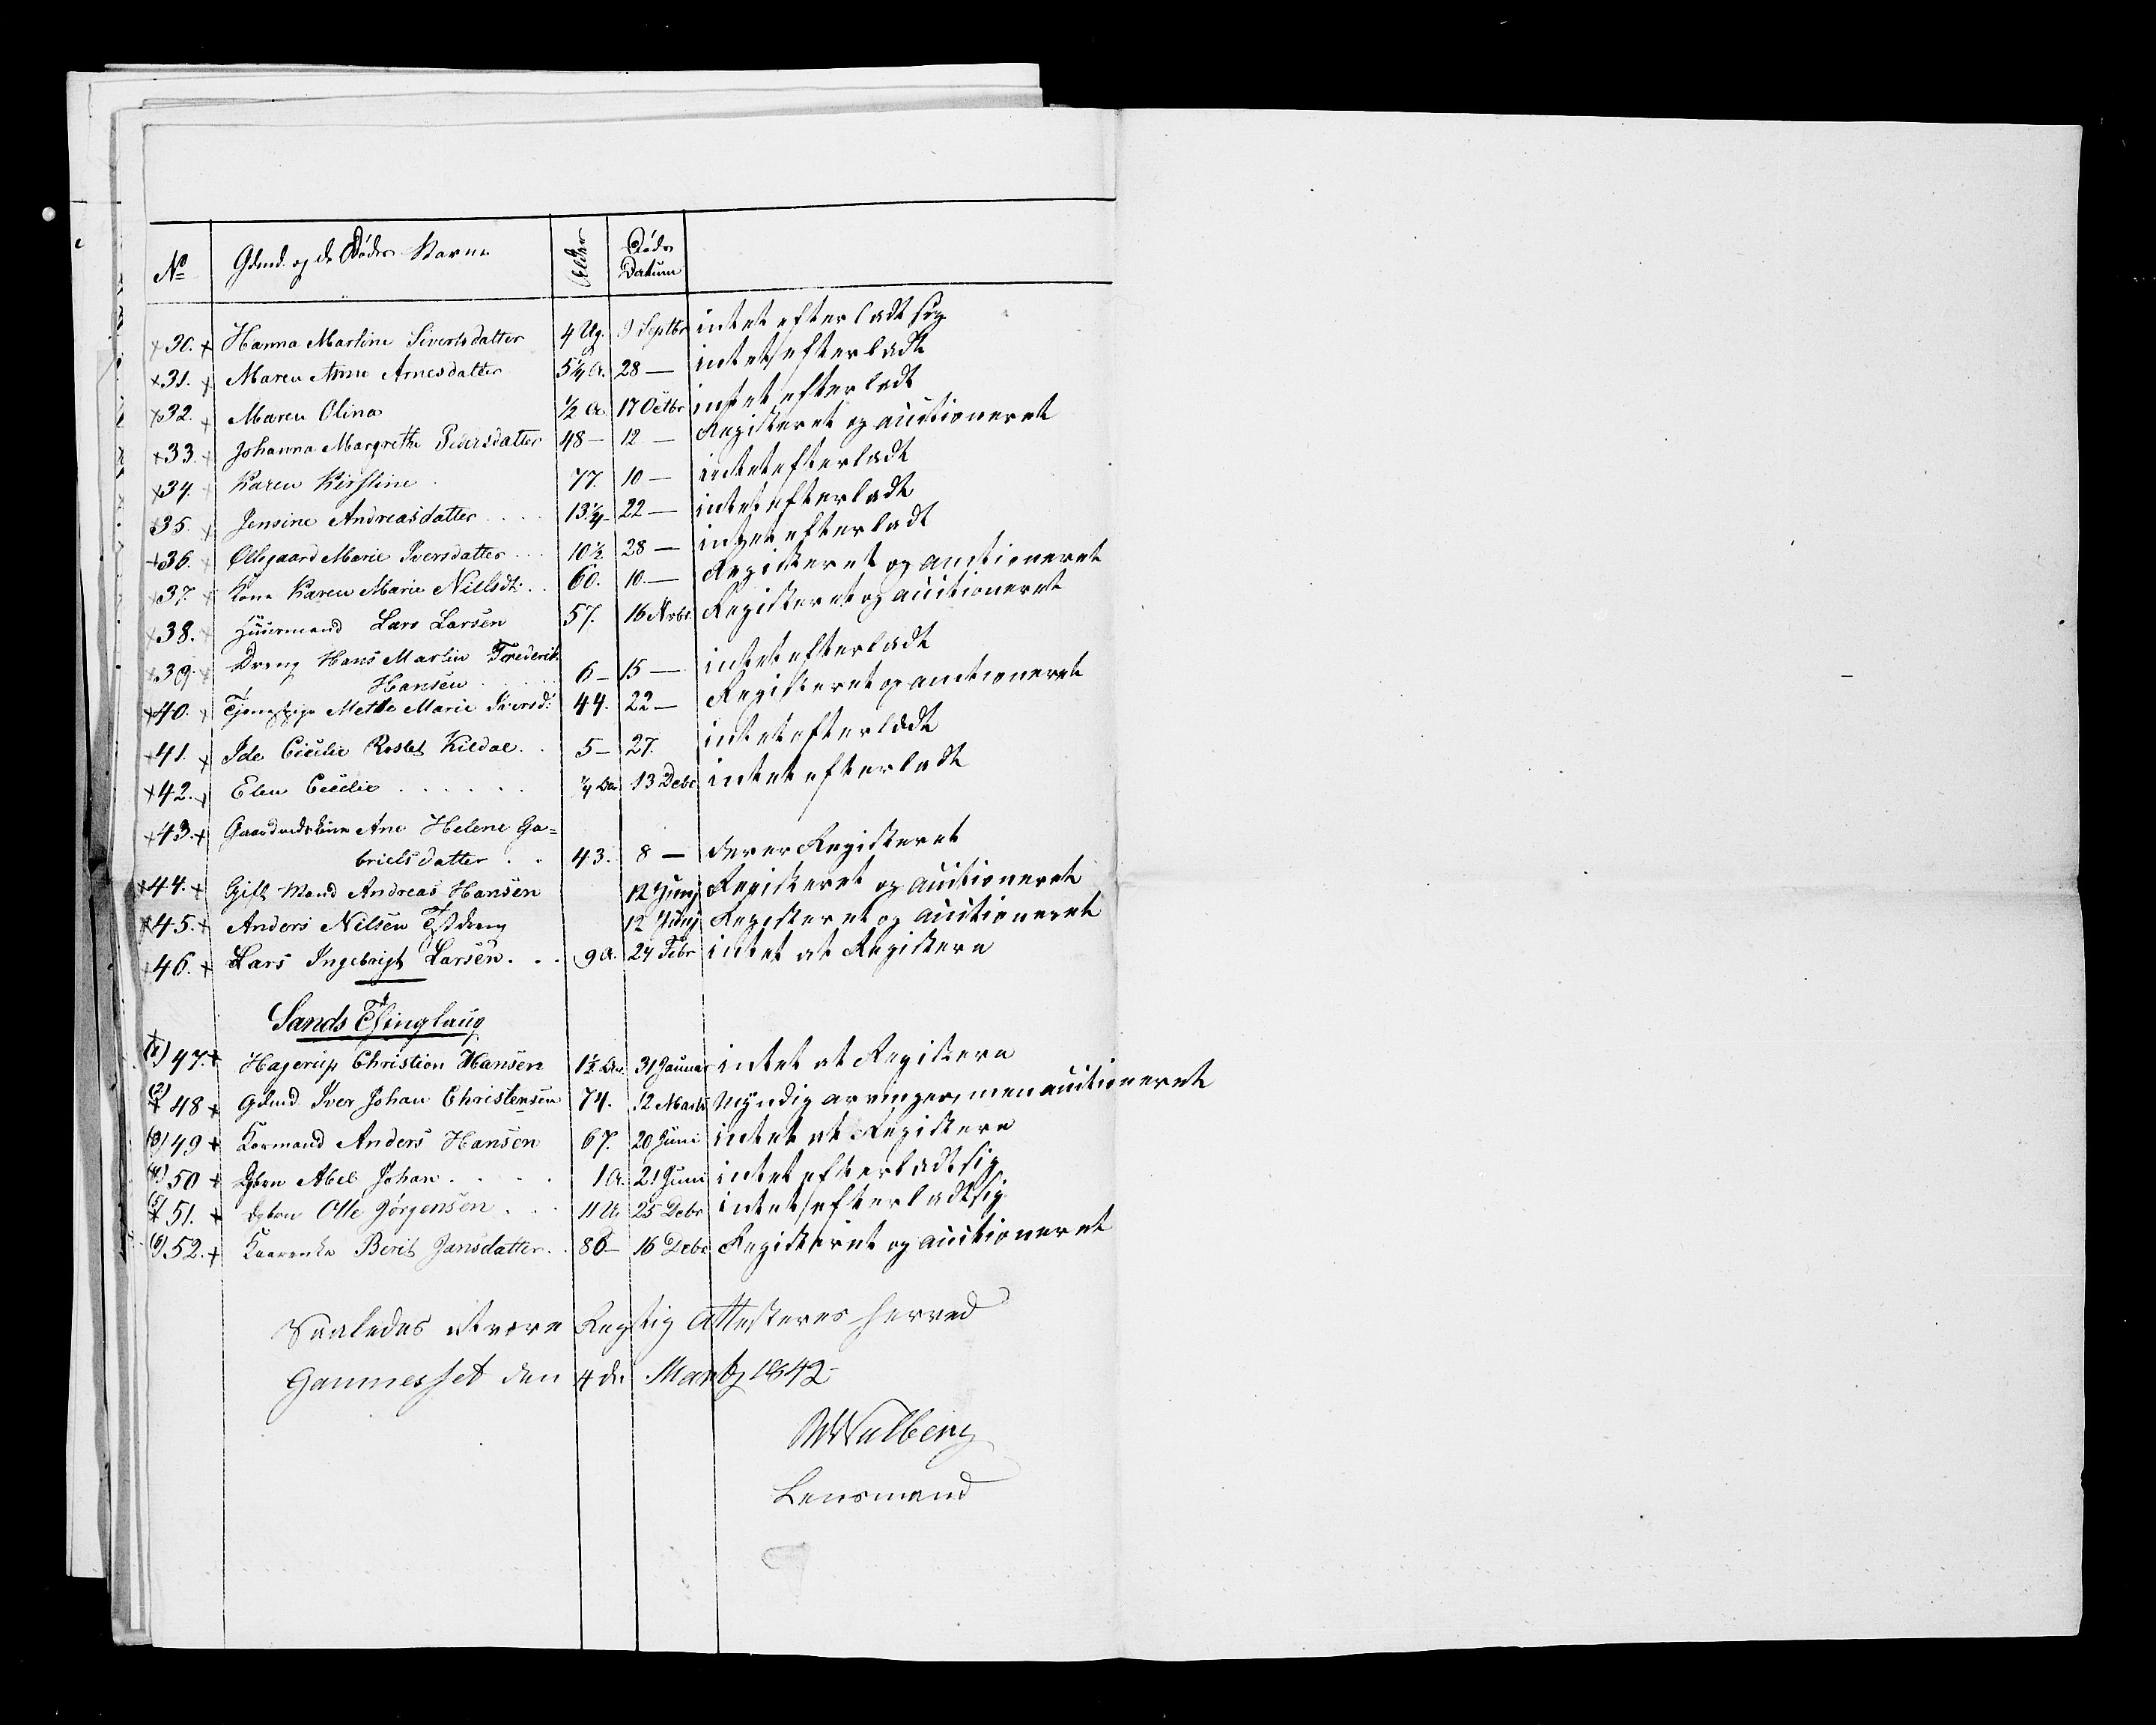 No Gdmd. og de Dødes Navne Alder Døds
Datum
30. Hanna Martine Sivertsdatter 4 Ug. 9 Septbr intet efterladt sig
31. Maren Anne Arnesdatter 5 1/4 A. 28 — intet efterladt
32. Maren Olina 1/2 A. 17 Octbr intet efterladt
33. Johanna Margrethe Pedersdatter 48 — 12 — Registeret og auctioneret
34. Karen Kirstine 77. 10 — intet efterladt
35. Jensine Andreasdatter . . . . 13 1/4 — 22 — intet efterladt
36. Ellsgaard Marie Iversdatter . . . 10 1/2 28 — intet efterladt
37. Kone Karen Marie Nillsdt: . . 60. 10. — Registeret og auctioneret
38. Huusmand Lars Larsen 57. 16 Novbr. Registeret og auctioneret
39. Dreng Hans Martin Frederik
Hansen . . . . 6 — 15 — intet efterladt
40. Tjenestpige Mette Marie Iversd: 44. 22 — Registeret og auctioneret
41. Ide Cicilie Kildal . . 5 — 27. intet efterladt
42. Elen Cecilie . . . . . . 13 Debr intet efterladt
43. Gaardmdskone Ane Helene Ga=
brielsdatter . . 43. 8 — der er Registeret
44. Gift Mand Andreas Hansen 12 Junj Registeret og auctioneret
45. Anders Nilsen Tjstdreng 12 Junj Registeret og auctioneret
46. Lars Ingebrigt Larsen . . . 9 A. 24 Febr intet at Registere
Sands Thinglaug
(1) 47. Hagerup Christion Hansen 1 1/2 31 Januar intet at Registere
(2) 48 Gdmd. Iver Johan Christensen 74. 12 Marts Myndig arvinger, men auctioneret
(3) 49 Kaarmand Anders Hansen 67. 20 Juni intet at Registere
(4) 50 Dgbrn Abel Johan . . . . 1 A. 21 Juni intet efterladt sig
(5) 51. Dgbrn Olle Jørgensen . . . 11 U. 25 Debr intet efterladt sig
(6) 52. Kaarenke Berit Jansdatter . . 86 — 16 Debr Registeret og auctioneret
Saaledes at være Rigtig Attesteres herved
Gaunesset den 4de Martz 1842
Walberg
Lensmand